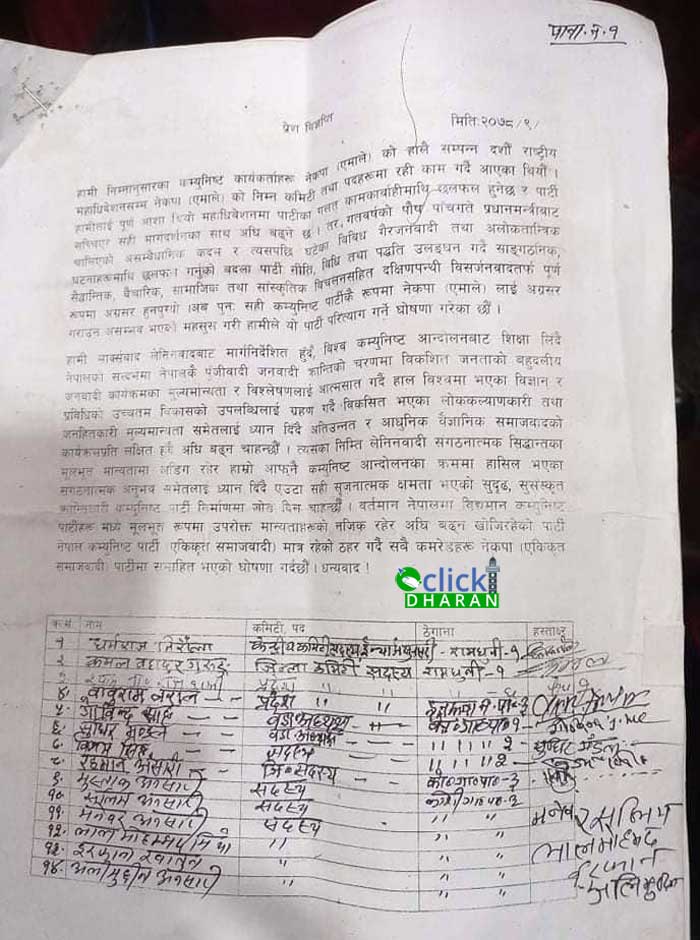 पाना नं. १
प्रेश विज्ञप्ति
मिति: २०७८/९/
हामी निम्नानुसारका कम्युनिष्ट कार्यकर्ताहरू नेकपा (एमाले) को हालै सम्पन्न दशौं राष्ट्रिय
महाधिवेशनसम्म नेकपा (एमाले) को निम्न कमिटि तथा पदहरूमा रही काम गर्दै आएका थियौं ।
हामीलाई पूर्ण आशा थियो महाधिवेशनमा पार्टीका गलत कामकारवाहीमाथि छलफल हुनेछ र पार्टी
सच्चिएर सही मार्गदर्शनका साथ अघि बढ्ने छ । तर, गतवर्षको पौष पाँचगते प्रधानमन्त्रीबाट
चालिएको असम्वैधानिक कदम र त्यसपछि घटेका विविध गैरजनवादी तथा अलोकतान्त्रिक
घटनाहरूमाथि छलफल गर्नुको बदला पार्टी नीति, विधि तथा पद्धति उलङघन गर्दै साङ्गठनिक,
सैद्धान्तिक, वैचारिक, सामाजिक तथा सांस्कृतिक विचलनसहित दक्षिणपन्थी विसर्जनवादतर्फ पूर्ण
रूपमा अग्रसर हुनपुग्यो । अब पुनः सही कम्युनिष्ट पार्टीकै रूपमा नेकपा (एमाले) लाई अग्रसर
गराउन असम्भव भएको महसुस गरी हामीले यो पार्टी परित्याग गर्ने घोषणा गरेका छौं ।
हामी मार्क्सवाद लेनिनवादबाट मार्गनिर्देशित हुँदै, विश्व कम्युनिष्ट आन्दोलनबाट शिक्षा लिँदै
नेपालको सन्दर्भमा नेपालकै पूंजीवादी जनवादी क्रान्तिको चरणमा विकशित जनताको बहुदलीय
जनवादी कार्यक्रमका मूल्यमान्यता र विश्लेषणलाई आत्मसात गर्दै हाल विश्वमा भएका विज्ञान र
प्रविधिको उच्चतम विकासको उपलब्धिलाई ग्रहण गर्दै विकसित भएका लोककल्याणकारी तथा
जनहितकारी मूल्यमान्यता समेतलाई ध्यान दिँदै अतिउन्नत र आधुनिक वैज्ञानिक समाजवादको
कार्यक्रमप्रति लक्षित हुँदै अघि बढ्न चाहन्छौं । त्यसका निम्ति लेनिनवादी संगठनात्मक सिद्धान्तका
मूलभूत मान्यतामा अडिग रहेर हाम्रो आफ्नै कम्युनिष्ट आन्दोलनका क्रममा हासिल भएका
संगठनात्मक अनुभव समेतलाई ध्यान दिँदै एउटा सही सृजनात्मक क्षमता भएको सुदृढ, सुसंस्कृत
क्रान्तिकारी कम्युनिष्ट पार्टी निर्माणमा जोड दिन चाहन्छौं । वर्तमान नेपालमा विद्यमान कम्युनिष्ट
पार्टीहरू मध्ये मूलभूत रूपमा उपरोक्त मान्यताहरूको नजिक रहेर अघि बढ्न खोजिरहेको पार्टी
नेपाल कम्युनिष्ट पार्टी (एकिकृत समाजवादी) मात्र रहेको ठहर गर्दै सवै कमरेडहरू नेकपा (एकिकृत
समाजवादी) पार्टीमा समाहित भएको घोषणा गर्दछौं । धन्यवाद !
click
DHARAN
क्र.सं. नाम कमिटी, पद ठेगाना हस्ताक्षर
१ धर्मराज निरौला केन्द्रीय कमिटी सदस्य रामधुनी-१
२ कमल बहादुर गुरुङ जिल्ला कमिटी सदस्य रामधुनी-१
प्रदेश " "
४. बाबुराम बराल प्रदेश " "
५. गोविन्द वडा अध्यक्ष
६. सुधिर मण्डल वडा सुधिर मंडल
८. रहमान अंसारी जि० सदस्य
९. मुस्ताक अनसारी सदस्य को० गा० पा०-३
१०. सलिम अनसारी सदस्य
११. मनेवर अनसारी सदस्य " " मनेवर
१२. लाल मोहम्मद मियाँ " " "
१३. इरफान " "
१४. अलीमुद्दीन अनसारी " "